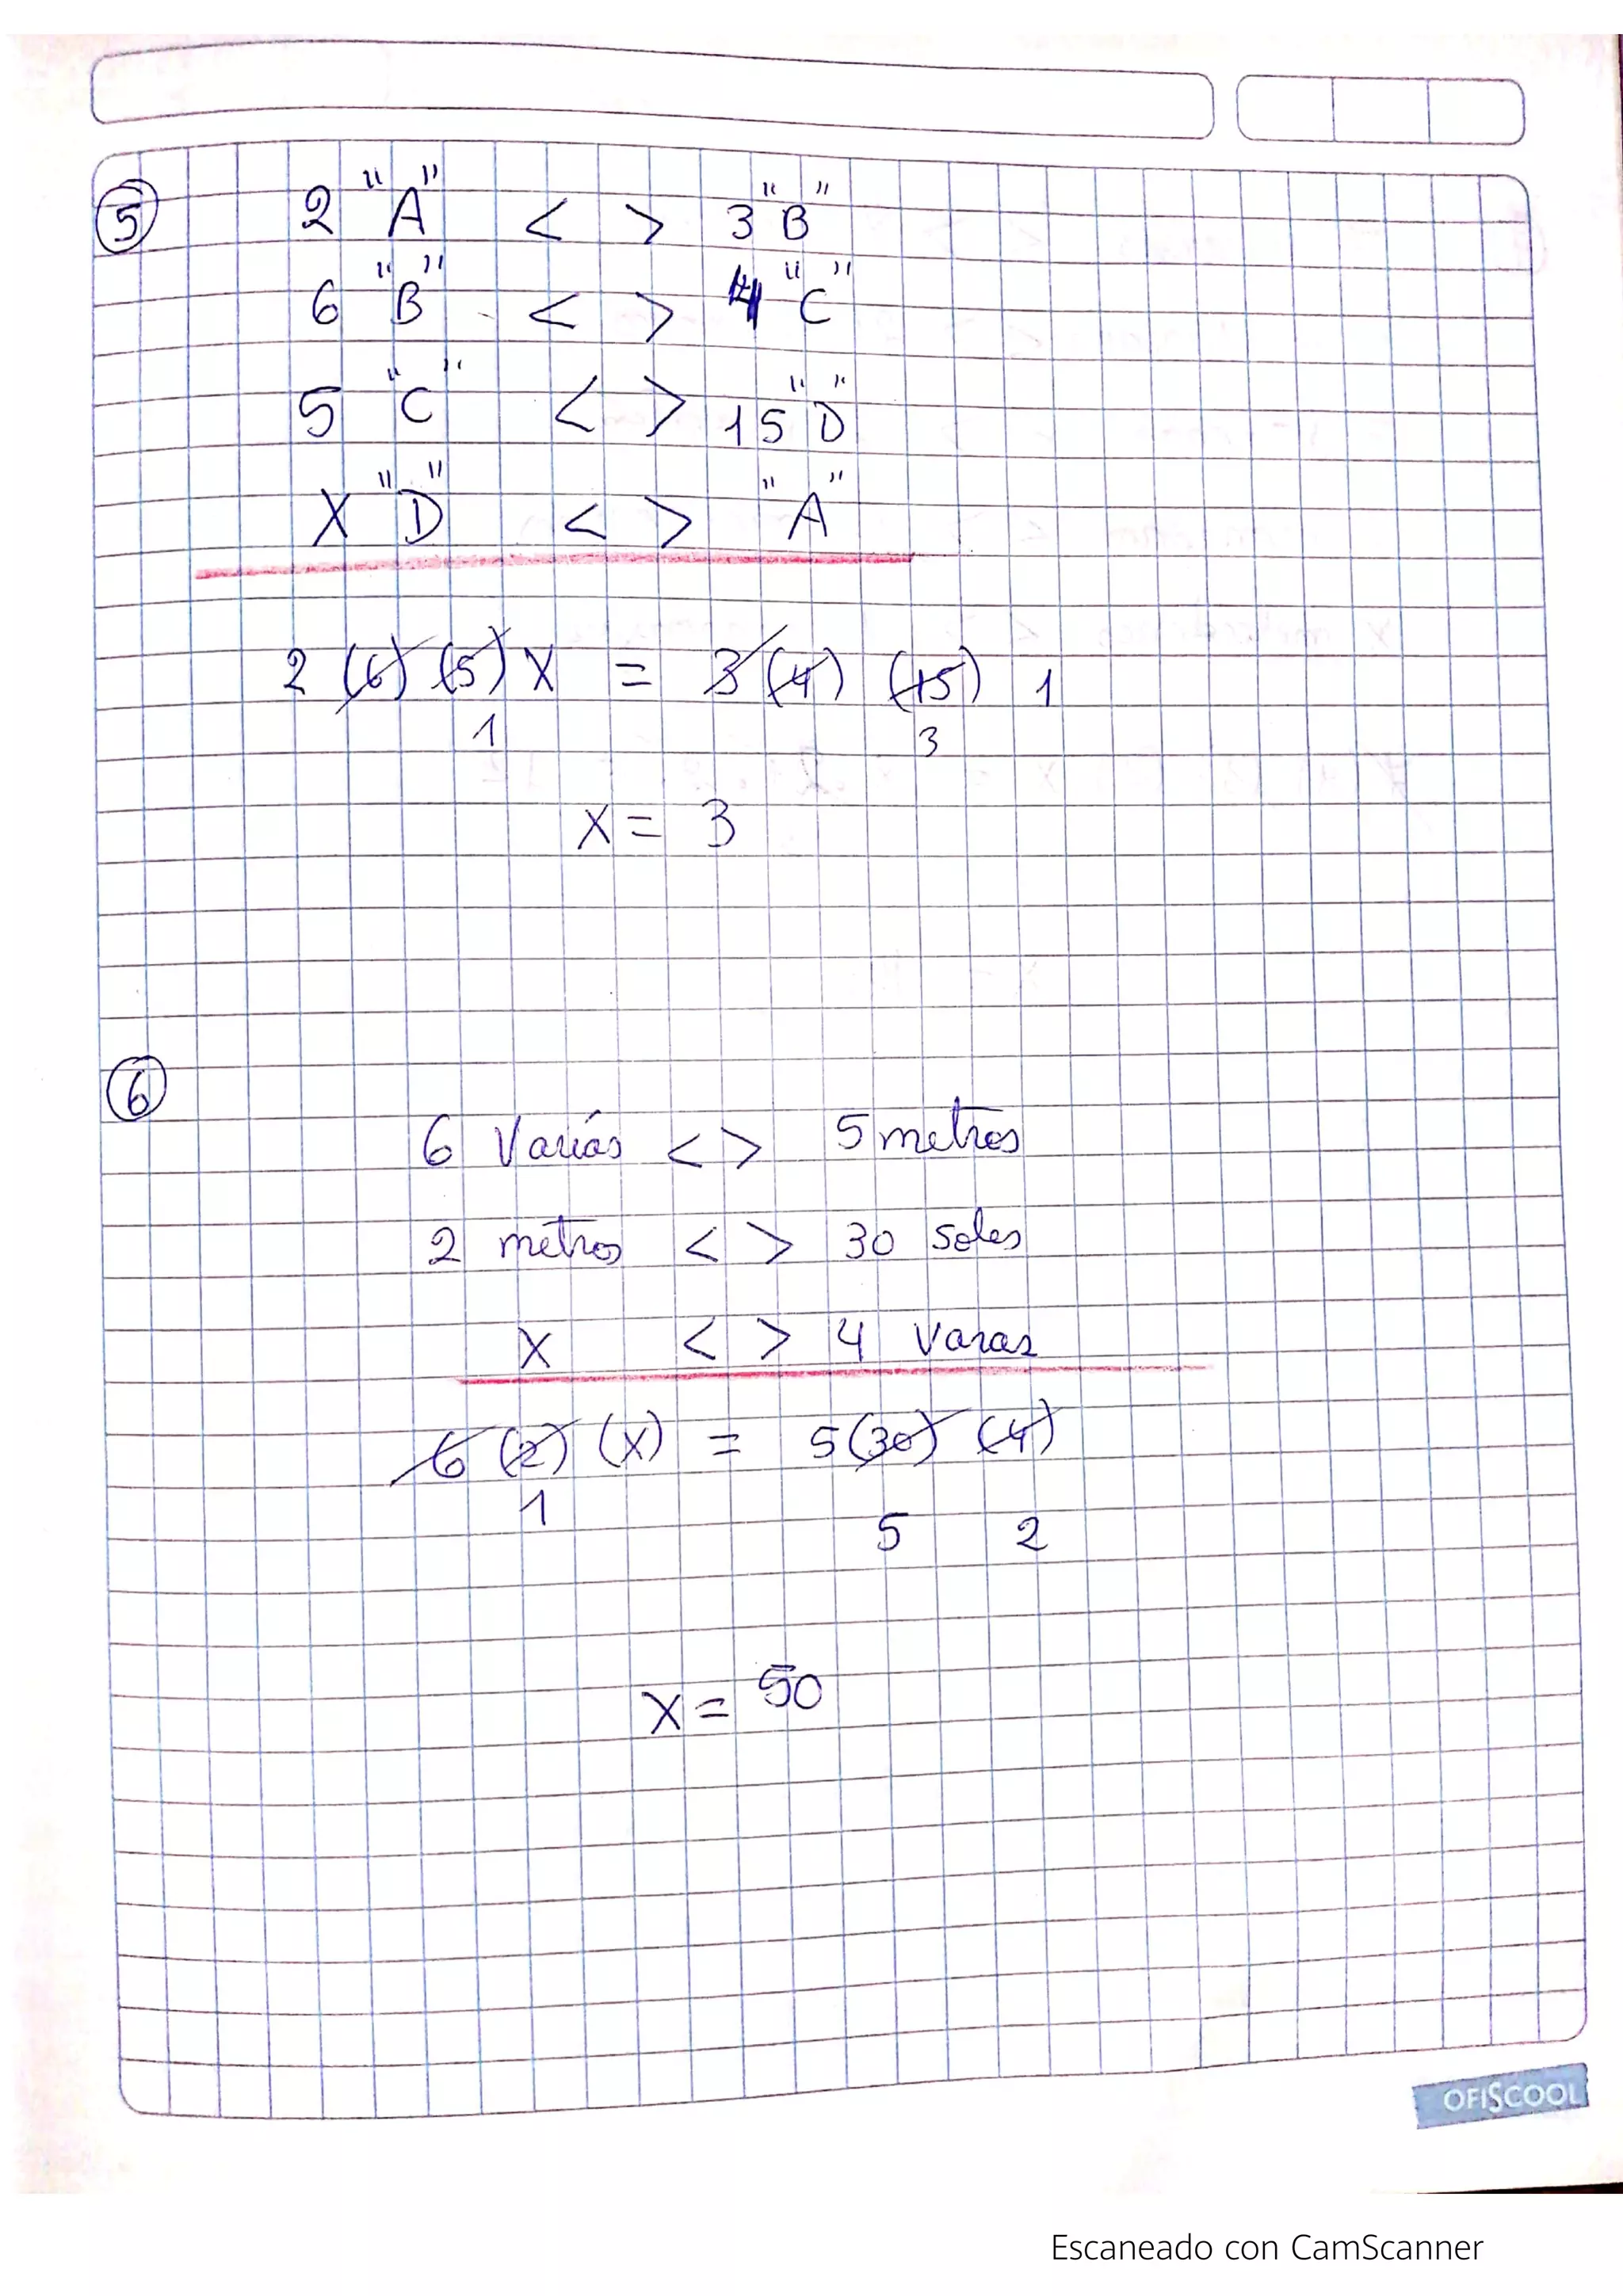 5 2 "A" < > 3 "B"
6 "B" < > 4 "C"
5 "C" < > 15 "D"
X "D" < > "A"
2 (6) (5) X = 3 (4) (15) 1
1 3
X = 3
6
6 Varías < > 5 metros
2 metros < > 30 soles
X < > 4 Varas
6 (2) (X) = 5 (30) (4)
1 5 2
X = 50
OFISCOOL
Escaneado con CamScanner